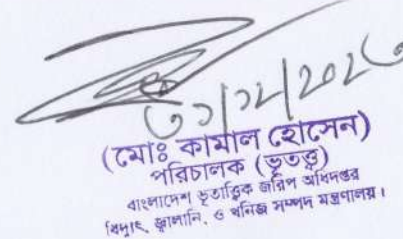 ৩১/১২/২০২৩
(মোঃ কামাল হোসেন)
পরিচালক (ভূতত্ত্ব)
বাংলাদেশ ভূতাত্ত্বিক জরিপ অধিদপ্তর
বিদ্যুৎ, জ্বালানি, ও খনিজ সম্পদ মন্ত্রণালয়।